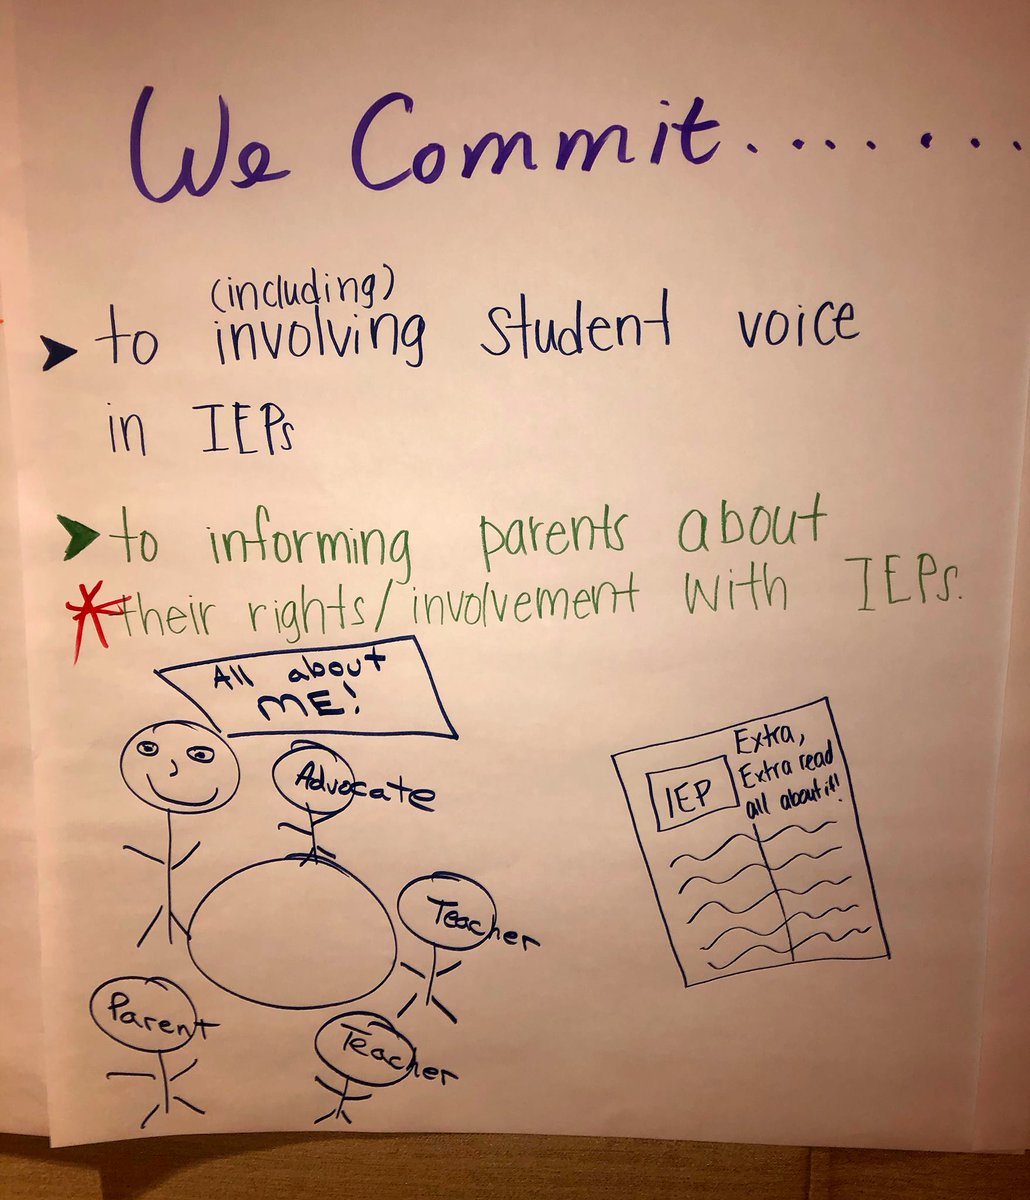 We Commit........
(including)
➤ to involving student voice
in IEPs
➤ to informing parents about
*their rights/involvement with IEPs.
All about
ME!
Advocate
Teacher
Parent
Teacher
IEP
Extra,
Extra read
all about it!